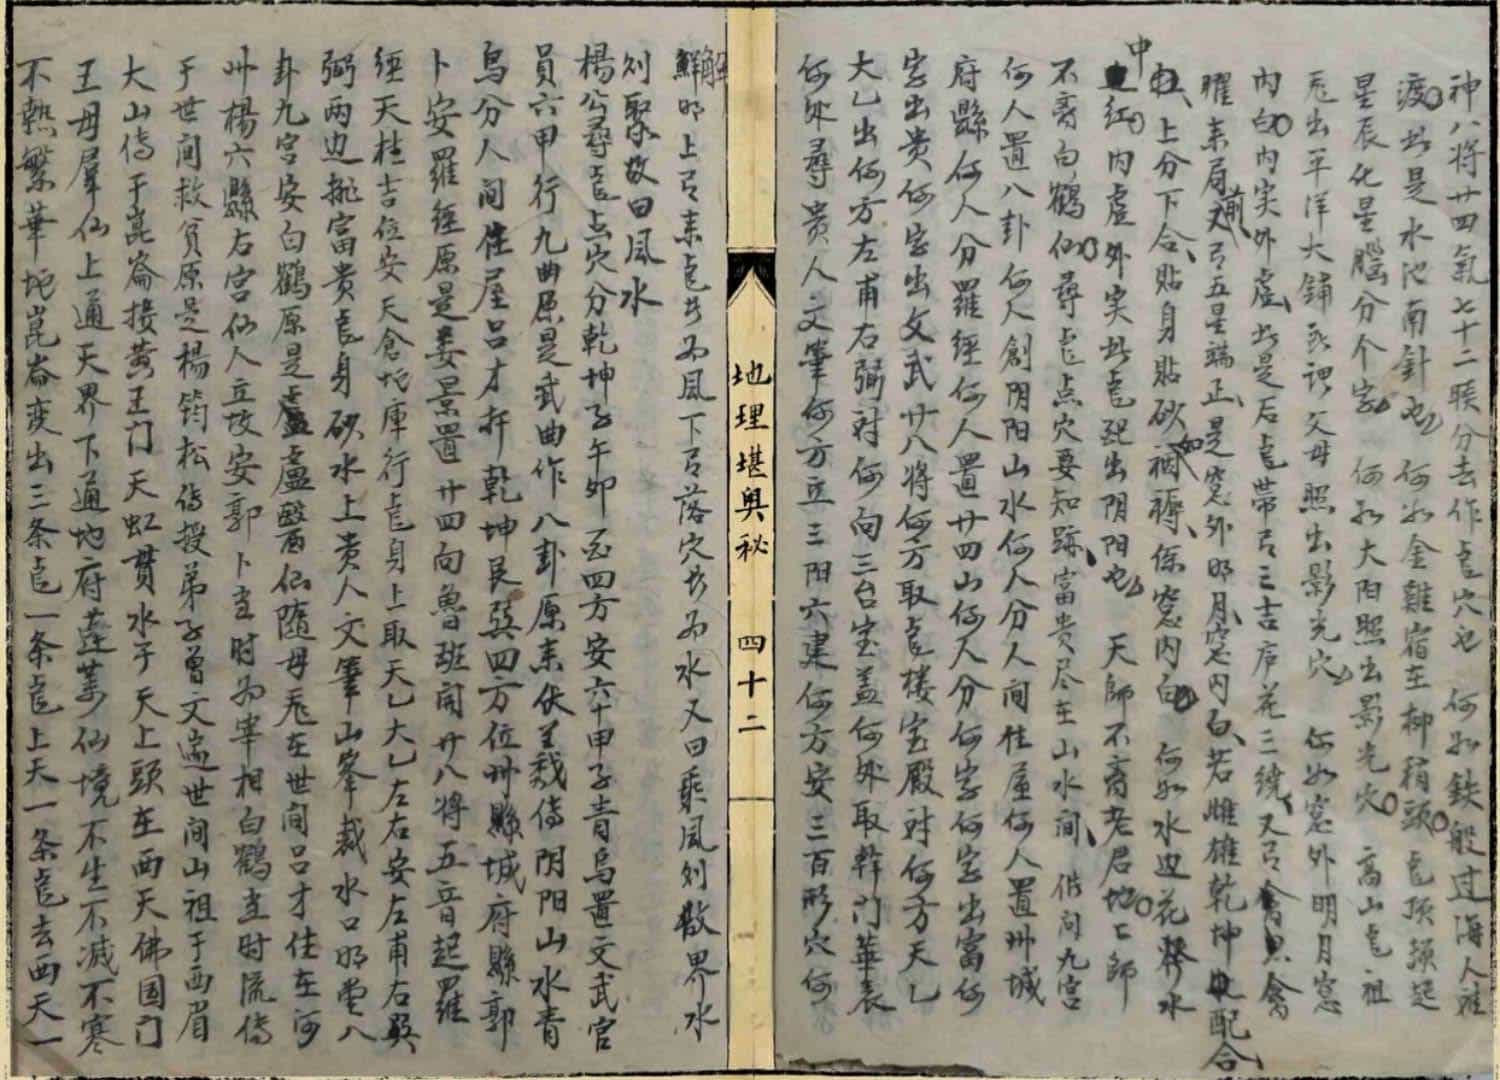 神八将廿四氣七十二候分去作龙穴也　何如鉄船过海人难
渡　此是水池南針也　何如金雞宿在柳稍頭　龙顶頭起
星辰化星腦分个字　何如大阳照出影光穴　高山龙祖
龙出平洋大鋪 父母照出影光穴　何如窓外明月窓
内白　内实外虚　此是后龙带 三吉 花三繞　又
曜末局前 五星端正　是窓外明月窓内白　若雌雄乾坤配合
中 上分下合　貼身貼砂 如裀褥　係窓内白　何如水边花 水
红　内虚外实　此龙 出阴阳也　天師不斎老君地　地師
不斎白鶴仙　尋龙点穴要知跡　富贵尽在山水间　借问九宫
何人置八卦何人創阴阳山水何人分人间住屋何人置州城
府縣何人分羅經何人置廿四山何人分何字何字出富何
字出贵何字出文武廿八将何方取龙楼宝殿对何方天乙
大乙出何方左甫右弼对何向三台宝盖何处取斡门華表
何处尋贵人文筆何方立三阳六建何方安三百形穴何
地理堪輿秘　四十二
解明上 末龙 为風下 落穴 为水又曰乘風则散界水
则聚故曰風水
楊公尋龙点穴分乾坤子午卯酉四方安六十甲子青烏置文武官
員六甲行九曲原是武曲作八卦原来伏羲傳阴阳山水青
烏分人间住屋吕才 乾坤艮巽四方位州縣城府縣郭
卜安羅經原是姜景置廿四向魯班闹廿八将五音起羅
經天柱吉位安天倉地庫行龙身上取天乙大乙左右安左甫右
弼两边挑富贵龙身砂水上贵人文筆山峯裁水口明堂八
卦九宫安白鶴原是盧醫仙随母 在世间吕才住在河
州楊六縣右宫仙人立坟安郭卜当时为宰相白鶴当时流傳
于世间救贫原是楊筠松傳授弟子曾文 世间山祖于西眉
大山傳于崑崙接黄王门天虹貫水于天上頭在西天佛国门
王母羣仙上通天界下通地府蓬萊仙境不生不滅不寒
不熱繁華地崑崙变出三条龙一条龙上天一条龙去西天一